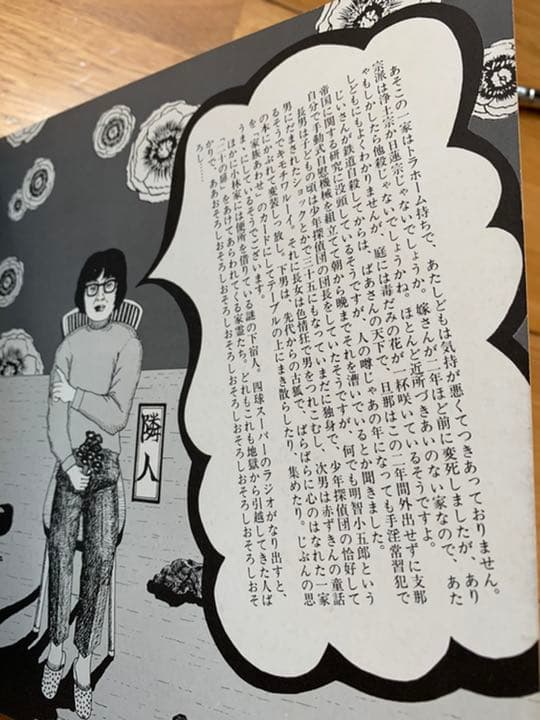 あそこの一家はトラホーム持ちで、あたしどもは気持が悪くてつきあっておりません。
宗派は浄土宗か日蓮宗じゃないでしょうか。嫁さんが一年ほど前に変死しましたが、あり
ゃもしかしたら他殺じゃないでしょうかね。ほとんど近所づきあいのない家なので、あた
しどもにもよくわかりませんが、庭には毒だみの花が一杯咲いているそうですよ。
じいさんが鉄道自殺してからは、ばあさんの天下で、旦那はこの二年間外出せずに支那
帝国に関する研究に没頭しているそうですが、人の噂じゃあの年になっても手淫常習犯で
自分で手動式自慰機械を組立てて朝から晩までそれを漕いでいるとか聞きました。
長男は子どもの頃は少年探偵団の団長をしていたそうですが、何でも明智小五郎という
男にだまされたショックとかで三十五にもなっていまだに独身で、少年探偵団の恰好して
るそうでキモチワルーイ、それに長女は色情狂で男をつれこむし、次男は赤ずきんの童話
の本にかぶれて変装しっ放し。下男は、先代からの古狐で、ばらばらに心のはなれた一家
を「家族あわせ」のカードにしてテーブルの上にまき散らしたり、集めたり。じぶんの思
うままにしているそうでございます。
ほかに小林家には便所を借りている謎の下宿人、四球スーパーのラジオがなり出すと、
「　」の扉をあけてあらわれてくる家霊たち。どれもこれも地獄から引越してきた人ば
かりで、ああおそろしおそろしおそろしおそろしおそろしおそろしおそろしおそろしおそ
ろし……
隣人